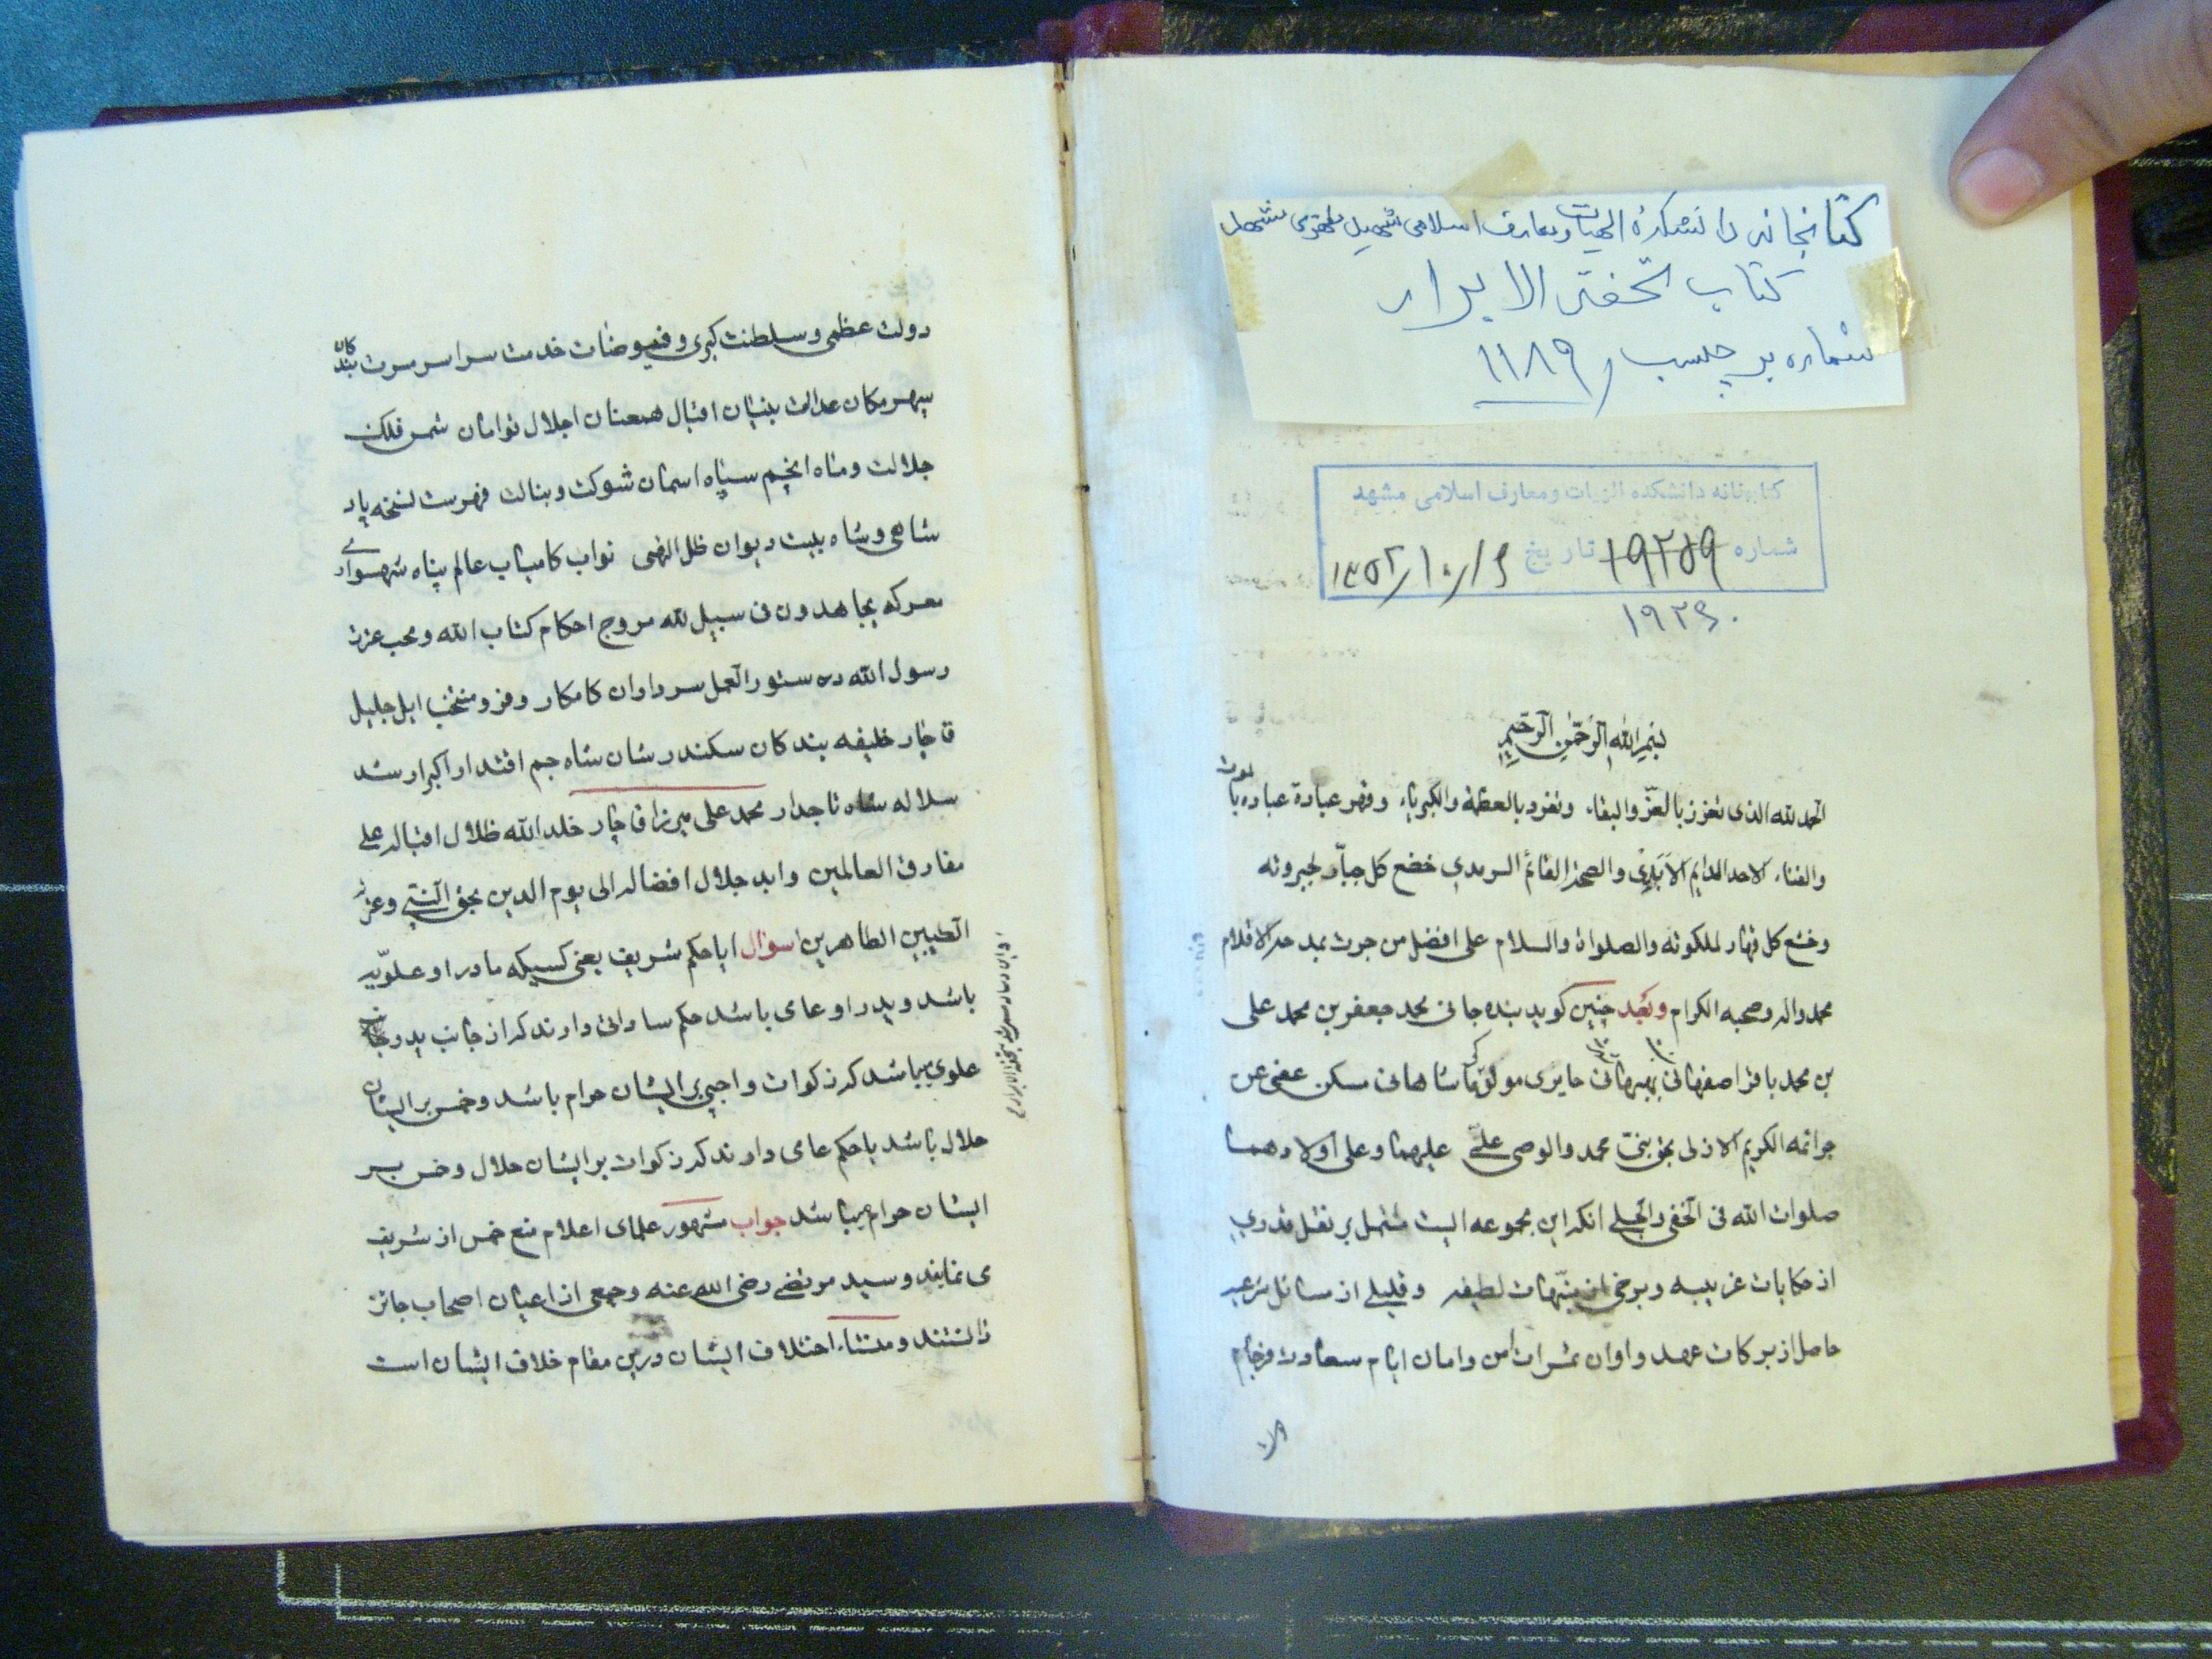 كتابخانه دانشكدهٔ الهیات و معارف اسلامی شهید مطهری مشهد
کتاب تحفة الابرار
شماره برچسب ۱۱۸۹
کتابخانه دانشکده الهیات و معارف اسلامی مشهد
شماره ۱۹۲۵۹ تاریخ ۱۳۵۲/۱۰/۱۶
۱۹۲۶۰
بسم الله الرحمن الرحیم
الحمد لله الذی تعزز بالعزّ والبقاء وتفرد بالعظمة والکبریاء وقهر عبادة عباده بالموت
والفناء الاحد الدایم الابدی والصمد القائم السرمدی خضع کل جبّار لجبروته
وخشع کل قهار لملکوته والصلواة والسلام علی افضل من جرت بمدحه الاقلام
محمد واله وصحبه الکرام وبعد چنین کوید بنده جانی محمد جعفر بن محمد علی
بن محمد باقر اصفهانی بهبهانی حایری مولد کرمانشاهانی مسکن عفی عن
جرائمه الکریم الازلی بحق نبیّ محمد والوصی علی علیهما وعلی اولادهما
صلوات الله فی الخفی والجلی انکه این مجموعه ایست مشتمل بر نقل قدری
از حکایات غریبه وبرخی از تنبّهات لطیفه وقلیلی از مسائل شرعیه
حاصل از برکات عهد واوان ثمرات امن وامان ایام سعادت فرجام
دولت عظمی وسلطنت کبری وفیوضات خدمت سراسر مسرت بندکان
سپهر مکان عدالت بنیان اقبال همعنان اجلال توامان شمس فلک
جلالت وماه انجم سپاه اسمان شوکت وبنالت فهرست نسخه پاد
شاهی وشاه بیت دیوان ظل الهی نواب کامیاب عالم پناه شهسوار
معرکه یجاهدون فی سبیل لله مروج احکام کتاب الله ومحب عزت
رسول الله دستور العمل سرداران کامکار وفرد منتخب ایل جلیل
قاجار خلیفه بندکان سکندر شان شاه جم اقتدار اکبر ارشد
سلاله شاه تاجدار محمد علی میرزا قاجار خلد الله ظلال اقباله علی
مفارق العالمین وابد جلال افضاله الی یوم الدین بحق النبی وعترته
الطیبین الطاهرین سؤال ایا حکم شریف یعنی کسیکه مادر او علویّه
باشد وپدر او عامی باشد حکم ساداتی دارند که از جانب پدر وجانب
علوی میباشد که زکوات واجبی بر ایشان حرام باشد وخمس بر ایشان
حلال باشد یا حکم عامی دارند که زکوات بر ایشان حلال وخمس بر
ایشان حرام میباشد جواب مشهور علمای اعلام منع خمس از شریف
می نمایند وسید مرتضی رضی الله عنه وجمعی از اعیان اصحاب جائز
دانستند ومنشاء اختلاف ایشان درین مقام خلاف ایشان است